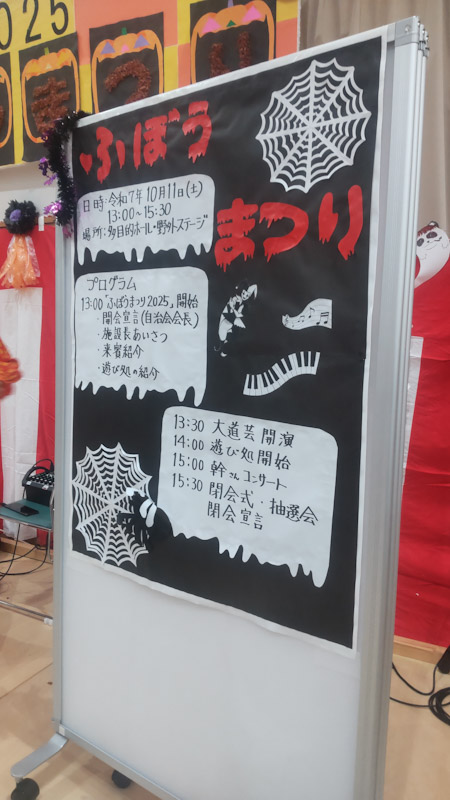 2025
まつり
ふぼう
まつり
日時:令和7年10月11日(土)
13:00~15:30
場所:多目的ホール・野外ステージ
プログラム
13:00「ふぼうまつり2025」開始
・開会宣言(自治会会長)
・施設長あいさつ
・来賓紹介
・遊び処の紹介
13:30 大道芸開演
14:00 遊び処開始
15:00 幹さんコンサート
15:30 閉会式・抽選会
閉会宣言